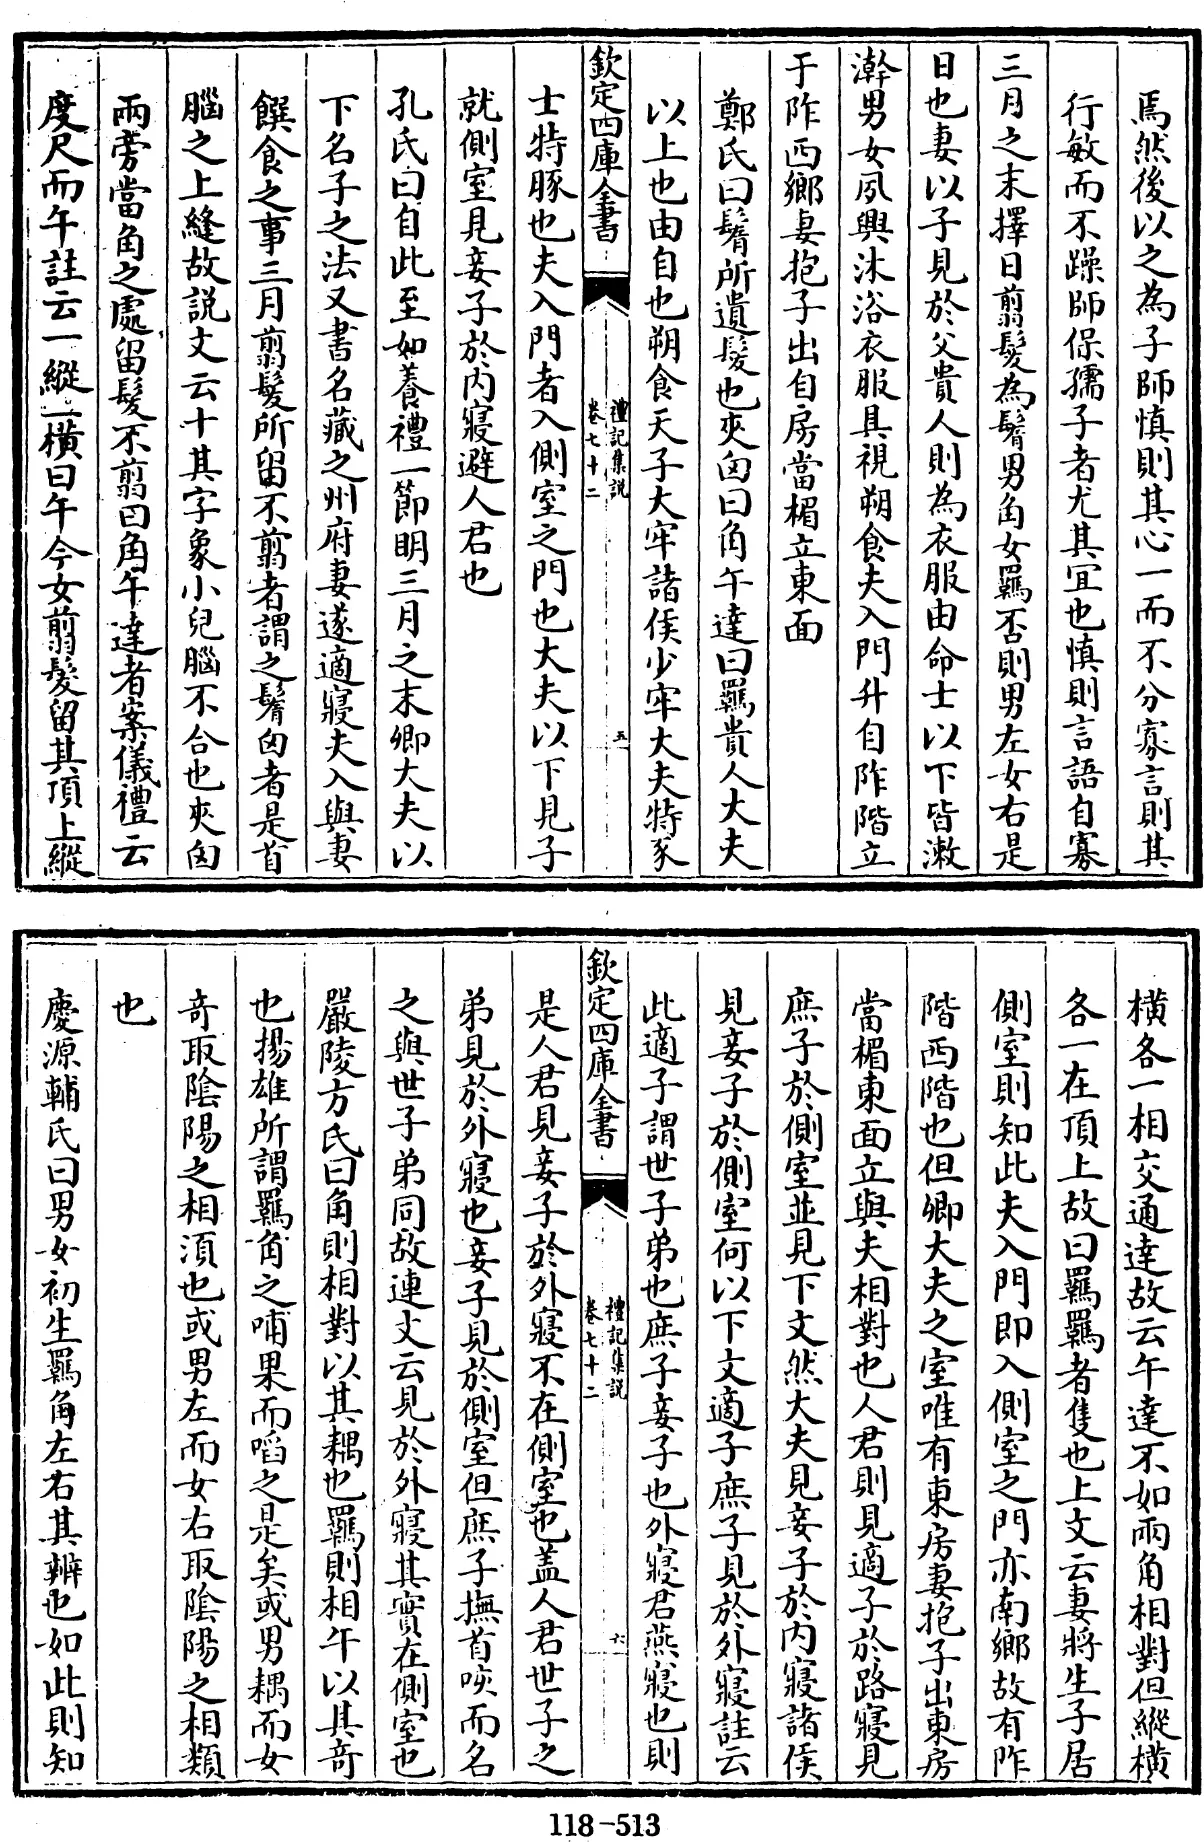 焉然後以之為子師慎則其心一而不分寡言則其
行敏而不躁師保孺子者尤其宜也慎則言語自寡
三月之末擇日翦髮為鬌男角女羈否則男左女右是
日也妻以子見於父貴人則為衣服由命士以下皆漱
澣男女夙興沐浴衣服具視朔食夫入門升自阼階立
于阼西鄉妻抱子出自房當楣立東面
鄭氏曰鬌所遺髮也夾囟曰角午達曰羈貴人大夫
以上也由自也朔食天子大牢諸侯少牢大夫特豕
欽定四庫全書
禮記集説
卷七十二
五
士特豚也夫入門者入側室之門也大夫以下見子
就側室見妾子於内寢避人君也
孔氏曰自此至如養禮一節明三月之末卿大夫以
下名子之法又書名藏之州府妻遂適寢夫入與妻
饌食之事三月翦髮所留不翦者謂之鬌囟者是首
腦之上縫故説文云十其字象小兒腦不合也夾囟
兩旁當角之處留髮不翦曰角午達者案儀禮云
度尺而午註云一縱一橫曰午今女翦髮留其頂上縱
橫各一相交通達故云午達不如兩角相對但縱橫
各一在頂上故曰羈羈者隻也上文云妻將生子居
側室則知此夫入門即入側室之門亦南鄉故有阼
階西階也但卿大夫之室唯有東房妻抱子出東房
當楣東面立與夫相對也人君則見適子於路寢見
庶子於側室並見下文然大夫見妾子於内寢諸侯
見妾子於側室何以下文適子庶子見於外寢註云
此適子謂世子弟也庶子妾子也外寢君燕寢也則
欽定四庫全書
禮記集説
卷七十二
六
是人君見妾子於外寢不在側室也盖人君世子之
弟見於外寢也妾子見於側室但庶子撫首咳而名
之與世子弟同故連文云見於外寢其實在側室也
嚴陵方氏曰角則相對以其耦也羈則相午以其奇
也揚雄所謂羈角之哺果而㗖之是矣或男耦而女
奇取陰陽之相湏也或男左而女右取陰陽之相類
也
慶源輔氏曰男女初生羈角左右其辨也如此則知
118-513